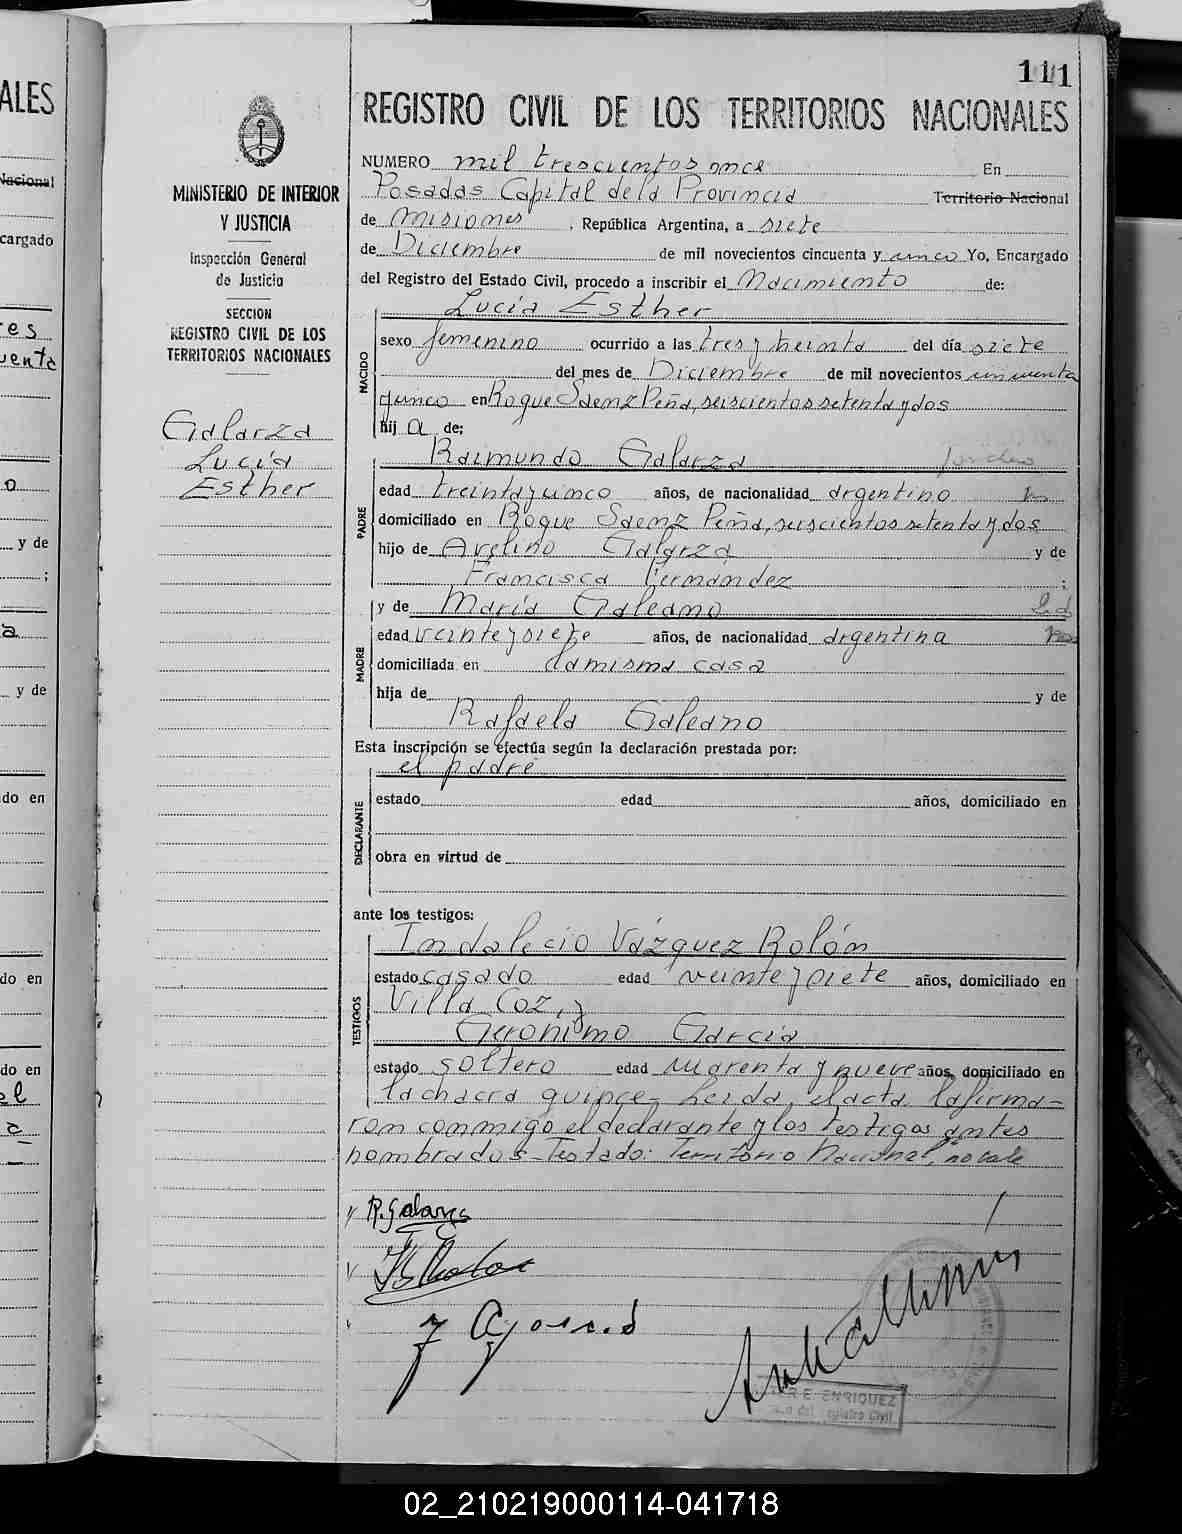 111
REGISTRO CIVIL DE LOS TERRITORIOS NACIONALES
MINISTERIO DE INTERIOR
Y JUSTICIA
Inspección General
de Justicia
SECCION
REGISTRO CIVIL DE LOS
TERRITORIOS NACIONALES
Galarza
Lucía
Esther
NUMERO mil trescientos once En
Posadas Capital de la Provincia Territorio Nacional
de Misiones, República Argentina, a siete
de Diciembre de mil novecientos cincuenta y cinco Yo, Encargado
del Registro del Estado Civil, procedo a inscribir el Nacimiento de:
Lucía Esther
NACIDO
sexo femenino ocurrido a las tres y treinta del día siete
del mes de Diciembre de mil novecientos cincuenta
y cinco en Roque Saenz Peña, seiscientos setenta y dos
hij a de;
Raimundo Galarza
PADRE
edad treinta y cinco años, de nacionalidad argentino
domiciliado en Roque Saenz Peña, seiscientos setenta y dos
hijo de Avelino Galarza y de
Francisca Fernández ;
y de María Galeano
MADRE
edad veinte y siete años, de nacionalidad argentina
domiciliada en la misma casa
hija de y de
Rafaela Galeano
Esta inscripción se efectúa según la declaración prestada por:
el padre
DECLARANTE
estado edad años, domiciliado en
obra en virtud de
ante los testigos:
Indalecio Vázquez Rolón
TESTIGOS
estado casado edad veinte y siete años, domiciliado en
Villa Coz, y
Gerónimo García
estado soltero edad cuarenta y nueve años, domiciliado en
la chacra quince- Leída el acta la firma-
ron conmigo el declarante y los testigos antes
nombrados- Testado: Territorio Nacional, no vale
R. Galarza
E. ENRIQUEZ
Registro Civil
ALES
Nacional
cargado
res
uenta
o
y de
;
a
y de
do en
do en
do en
el
02_210219000114-041718